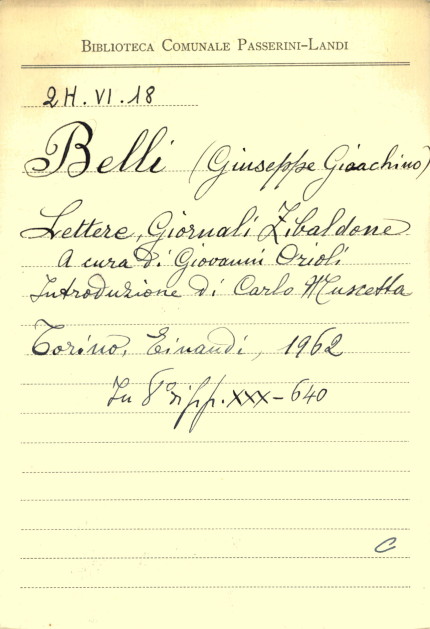 BIBLIOTECA COMUNALE PASSERINI-LANDI
2H.VI.18
Belli (Giuseppe Gioachino)
Lettere, Giornali Zibaldone
A cura di Giovanni Orioli
Introduzione di Carlo Muscetta
Torino, Einaudi, 1962
In 8° pp. XXX-640
C